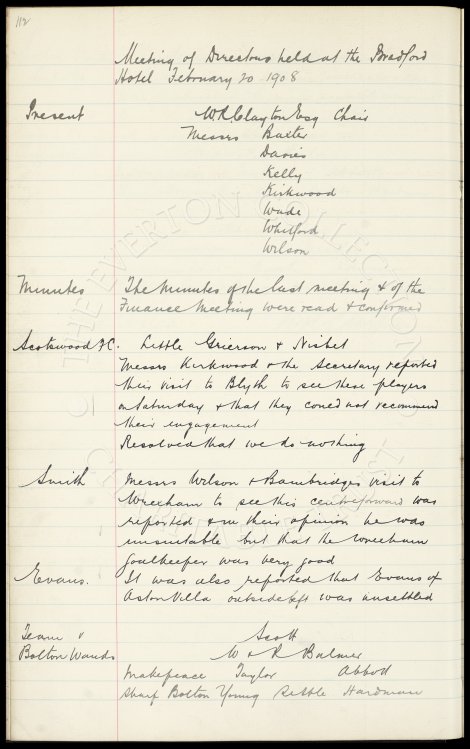 112
Meeting of Directors held at the Bradford
Hotel February 20 1908
Present W.R. Clayton Esq Chair
Messrs Baxter
Davies
Kelly
Kirkwood
Wade
Whitford
Wilson
Minutes The Minutes of the last meeting & of the
Finance Meeting were read & confirmed
Scotswood F.C. Little Grierson & Nisbet
Messrs Kirkwood & the Secretary reported
their visit to Blyth to see these players
on Saturday & that they could not recommend
their engagement
Resolved that we do nothing
Smith Messrs Wilson & Bambridges visit to
Wrexham to see this centreforward was
reported & in their opinion he was
unsuitable but that the Wrexham
goalkeeper was very good
Evans. It was also reported that Evans of
Aston Villa outside left was unsettled
Team v Scott
Bolton Wands W & R Balmer
Makepeace Taylor Abbott
Sharp Bolton Young Settle Hardman
THE EVERTON COLLECTION